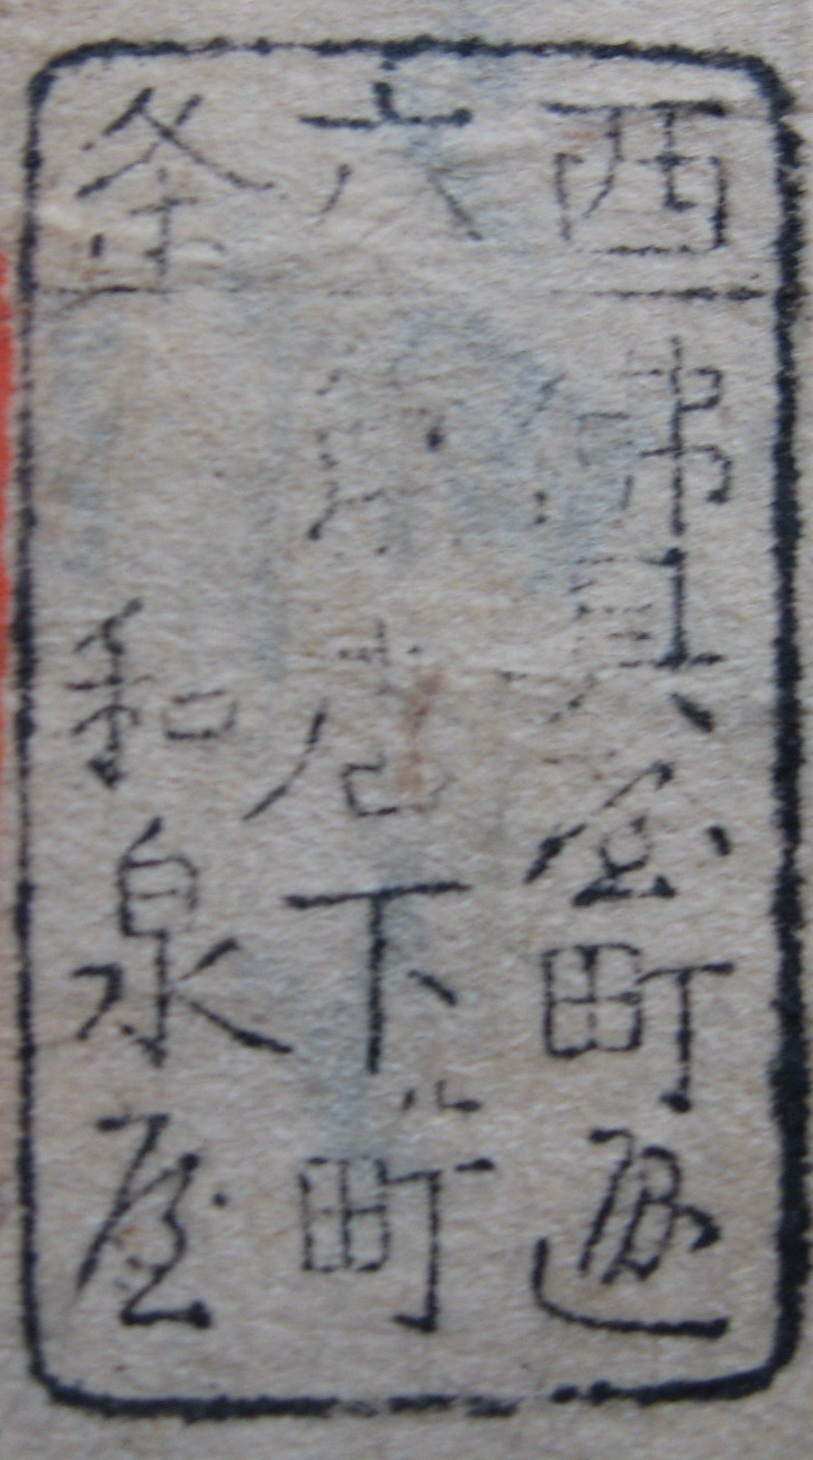 西六条
佛具屋町通
店下ル町
和泉屋